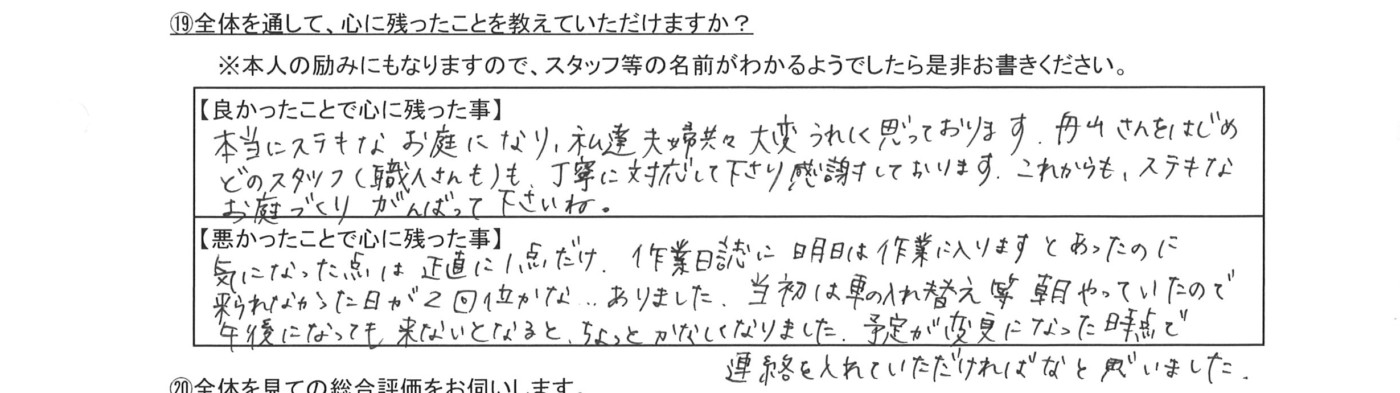 ⑲全体を通して、心に残ったことを教えていただけますか？
※本人の励みにもなりますので、スタッフ等の名前がわかるようでしたら是非お書きください。
【良かったことで心に残った事】
本当にステキなお庭になり、私達夫婦共々大変うれしく思っております。丹山さんをはじめ
どのスタッフ（職人さんも）も、丁寧に対応して下さり感謝しております。これからも、ステキな
お庭づくりがんばって下さいね。
【悪かったことで心に残った事】
気になった点は正直に1点だけ。作業日誌に明日は作業に入りますとあったのに
来られなかった日が2回位かな…ありました。当初は車の入れ替え等朝やっていたので
午後になっても来ないとなると、ちょっとかなしくなりました。予定が変更になった時点で
連絡を入れていただければなと思いました。
⑳全体を見ての総合評価をお伺いします。